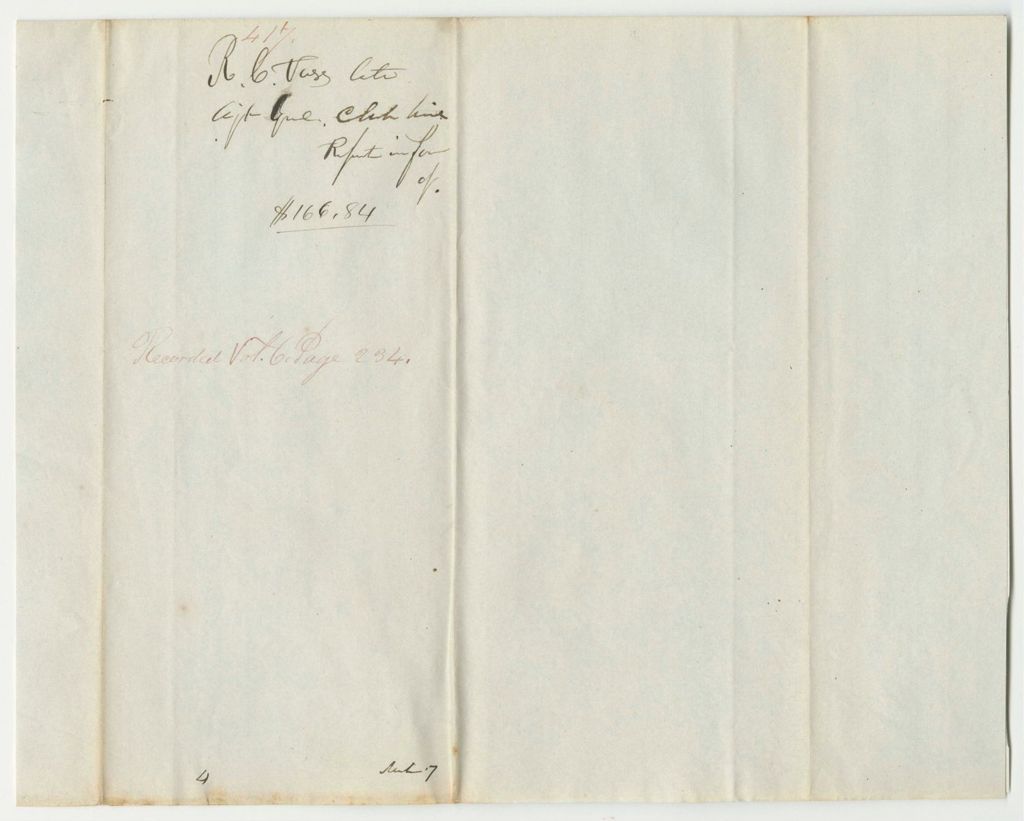 417.
R. C. Vass
Ajt Genl. Clerk hire
Report in favor
of.
$166.84
Recorded Vol. 6. Page 234.
4
7